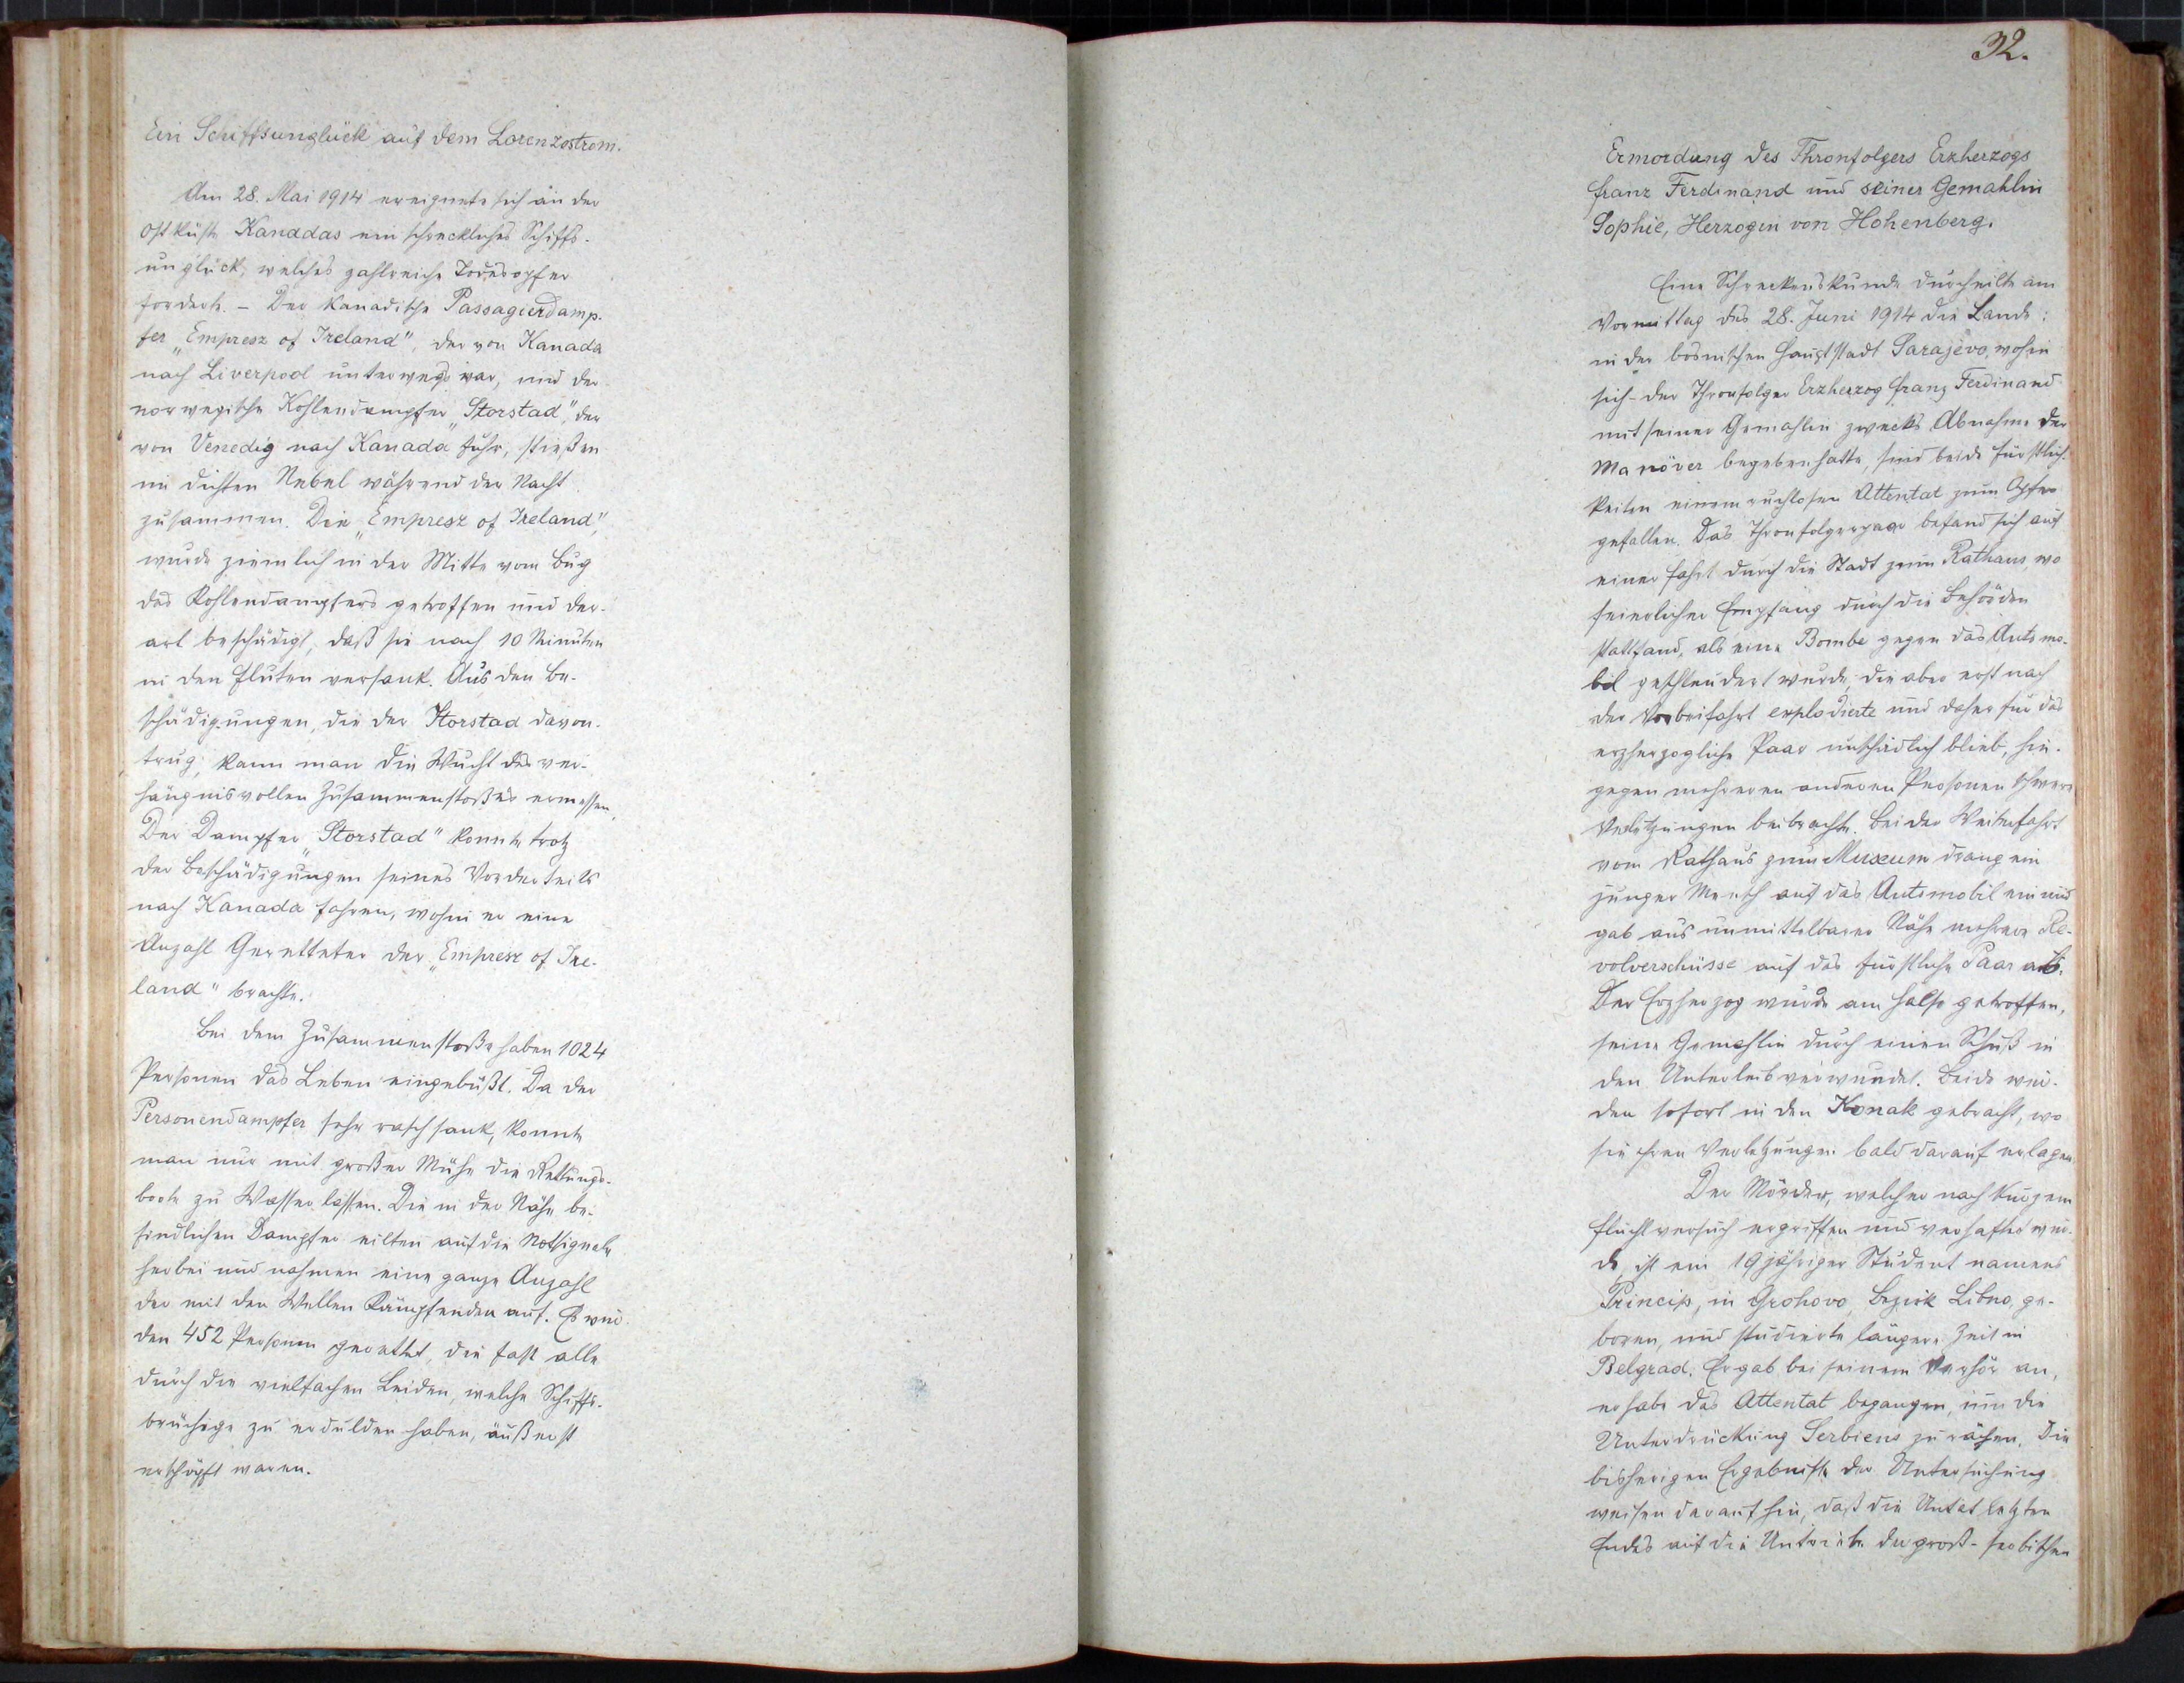 Ein Schiffsunglück auf dem Lorenzostrom.
Am 28. Mai 1914 ereignete sich an der
Ostküste Kanadas ein schreckliches Schiffs-
unglück, welches zahlreiche Todesopfer
forderte. – Der kanadische Passagierdamp-
fer „Empresz of Ireland", der von Kanada
nach Liverpool unterwegs war, und der
norwegische Kohlendampfer „Storstad", der
von Venedig nach Kanada fuhr, stießen
im dichten Nebel während der Nacht
zusammen. Die „Empresz of Ireland",
wurde ziemlich in der Mitte vom Bug
des Kohlendampfers getroffen und der-
art beschädigt, daß sie nach 10 Minuten
in den Fluten versank. Aus den Be-
schädigungen, die der Storstad davon-
trug, kann man die Wucht des ver-
hängnisvollen Zusammenstoßes ermessen.
Der Dampfer „Storstad" konnte trotz
der Beschädigungen seines Vorderteils
nach Kanada fahren, wohin er eine
Anzahl Geretteter der „Empresz of Ire-
land" brachte.
Bei dem Zusammenstoße haben 1024
Personen das Leben eingebüßt. Da der
Personendampfer sehr rasch sank, konnte
man nur mit großer Mühe die Rettungs-
boote zu Wasser lassen. Die in der Nähe be-
findlichen Dampfer eilten auf die Notsignale
herbei und nahmen eine ganze Anzahl
der mit den Wellen Kämpfenden auf. Es wur-
den 452 Personen gerettet, die fast alle
durch die vielfachen Leiden, welche Schiffs-
brüchige zu erdulden haben, äußerst
erschöpft waren.
32.
Ermordung des Thronfolgers Erzherzogs
Franz Ferdinand und seiner Gemahlin
Sophie, Herzogin von Hohenberg.
Eine Schreckenskunde durcheilte am
Vormittag des 28. Juni 1914 die Lande:
in der bosnischen Hauptstadt Sarajevo, wohin
sich der Thronfolger Erzherzog Franz Ferdinand
mit seiner Gemahlin zwecks Abnahme der
Manöver begeben hatte, sind beide Fürstlich-
keiten einem ruchlosen Attentat zum Opfer
gefallen. Das Thronfolgerpaar befand sich auf
einer Fahrt durch die Stadt zum Rathaus, wo
feierlicher Empfang durch die Behörden
stattfand, als eine Bombe gegen das Automo-
bil geschleudert wurde, die aber erst nach
der Vorbeifahrt explodierte und daher für das
erzherzogliche Paar unschädlich blieb, hin-
gegen mehreren anderen Personen schwere
Verletzungen beibrachte. Bei der Weiterfahrt
vom Rathaus zum Museum drang ein
junger Mensch auf das Automobil ein und
gab aus unmittelbarer Nähe mehrere Re-
volverschüsse auf das fürstliche Paar ab.
Der Erzherzog wurde am Halse getroffen,
seine Gemahlin durch einen Schuß in
den Unterleib verwundet. Beide wur-
den sofort in den Konak gebracht, wo
sie ihren Verletzungen bald darauf erlagen.
Der Mörder, welcher nach kurzem
Fluchtversuch ergriffen und verhaftet wur-
de, ist ein 19jähriger Student namens
Princip, in Grohovo, Bezirk Libno, ge-
boren, und studierte längere Zeit in
Belgrad. Er gab bei seinem Verhör an,
er habe das Attentat begangen, um die
Unterdrückung Serbiens zu rächen. Die
bisherigen Ergebnisse der Untersuchung
weisen darauf hin, daß die Untat letzten
Endes auf die Umtriebe der groß-serbischen